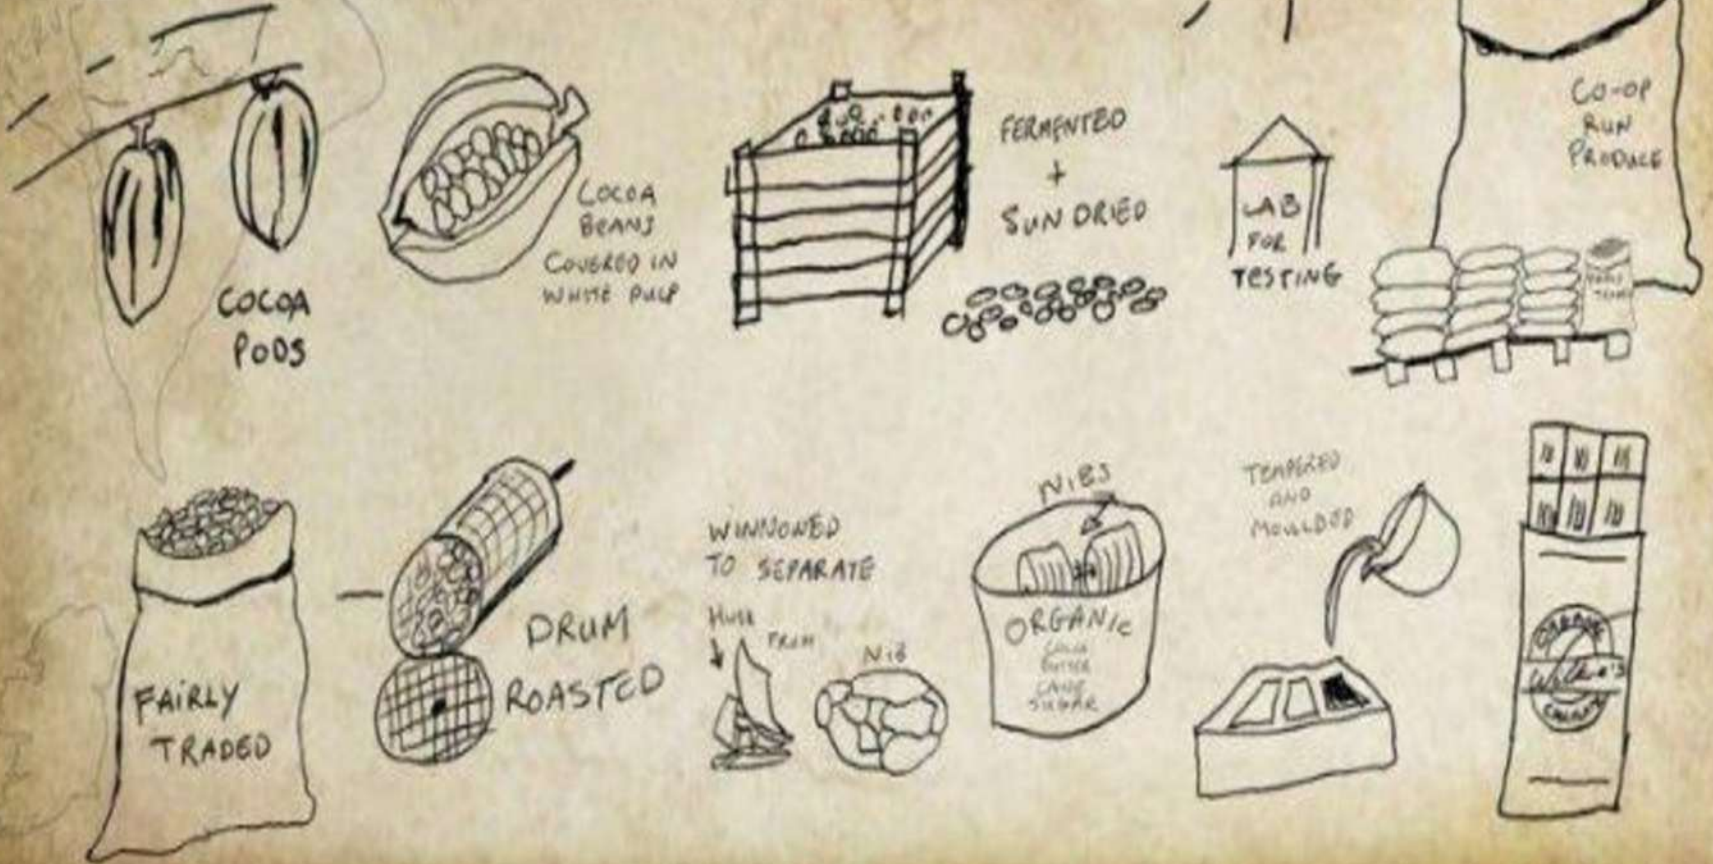 COCOA
PODS
COCOA
BEANS
COVERED IN
WHITE PULP
FERMENTED
+
SUN DRIED
LAB
FOR
TESTING
CO-OP
RUN
PRODUCE
FAIRLY
TRADED
DRUM
ROASTED
WINNOWED
TO SEPARATE
HUSK
FROM
NIB
NIBS
ORGANIC
COCOA
BUTTER
CANE
SUGAR
TEMPERED
AND
MOULDED
ORGANIC
Willie's